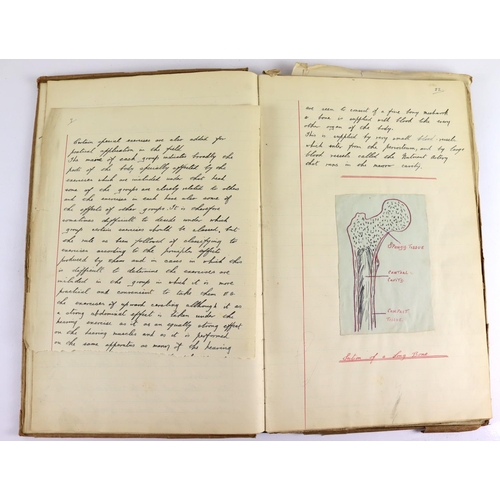 Certain special exercises are also added for
practical application in the field.
The name of each group indicates broadly the
parts of the body specially affected by the
exercises which are included under that head
some of the groups are closely related to others
and the exercises in each have also some of
the effects of other groups. It is therefore
sometimes difficult to decide under which
group certain exercises should be classed, but
the rule has been followed of classifying to
exercises according to the principle effect
produced by them and in cases in which this
is difficult to determine the exercises are
included in the group in which it is more
practical and convenient to take them
the exercises of upward although it has
a strong abdominal effect is taken under the
heaving exercise as it has an equally strong effect
on the heaving muscles and as it is performed
on the same apparatus as many of the heaving
are seen to consist of a fine bony meshwork
a bone is supplied with blood like every
other organ of the body.
This is supplied by very small blood vessels
which enter from the periosteum, and by large
blood vessels called the Nutrient Artery
that runs in the marrow cavity.
SPONGY TISSUE
CENTRAL
CAVITY
COMPACT
TISSUE
Section of a Long Bone